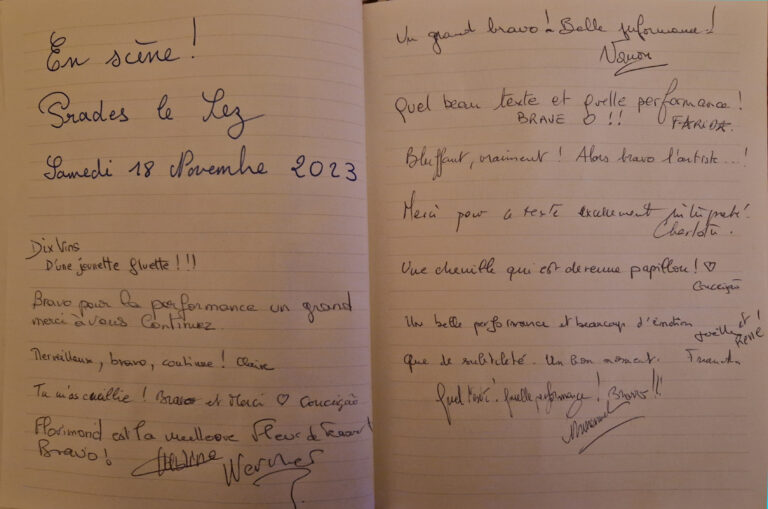 En scène !
Prades le Lez
Samedi 18 Novembre 2023
Dix Vins
D'une jeunette fluette !!!
Bravo pour la performance un grand
merci à vous Continuez
Merveilleux, bravo, continue ! Claire
Tu m'as cueillie ! Bravo et Merci ♡ Conceição
Florimond est la meilleure Fleur de
Bravo !
Un grand bravo ! Belle performance !
Quel beau texte et quelle performance !
BRAVE O !! FARIDA.
Bluffant, vraiment ! Alors bravo l'artiste...!
Merci pour ce texte excellement interprété.
Une chenille qui est devenue papillon ! ♡
Conceição
Un belle performance et beaucoup d'émotion
et
Que de subtilité. Un bon moment.
Quel texte ! Quelle performance ! Bravo !!!